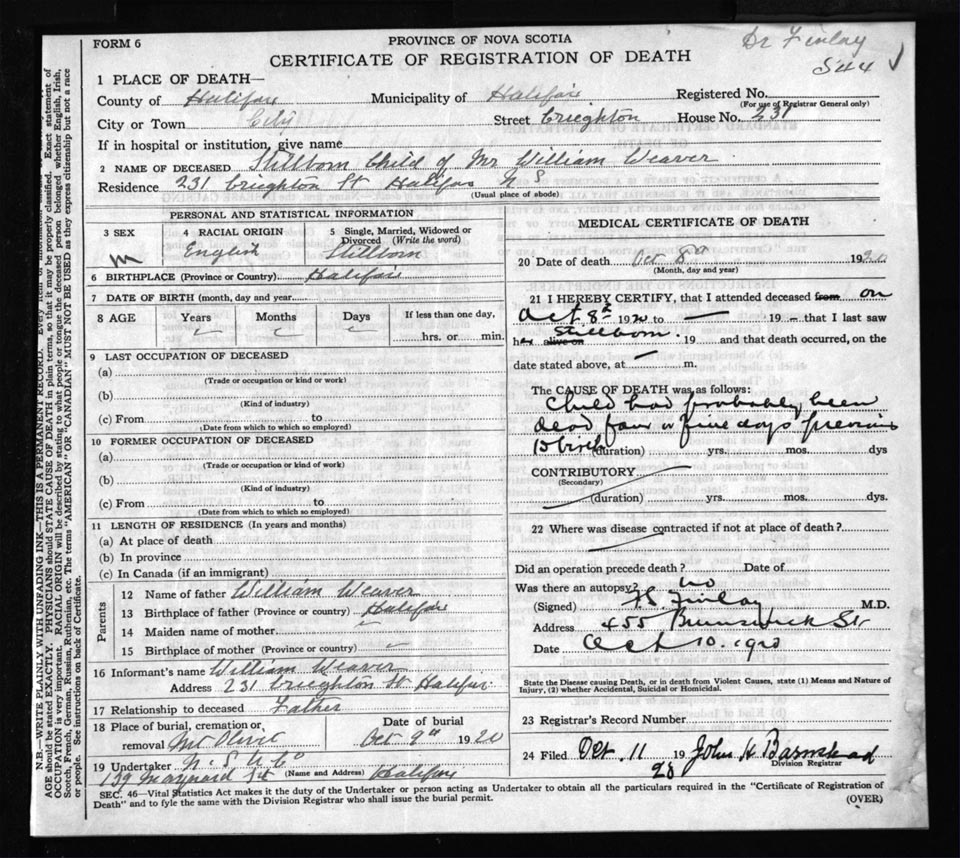 Dr Finlay
544 ✓
FORM 6
PROVINCE OF NOVA SCOTIA
CERTIFICATE OF REGISTRATION OF DEATH
1 PLACE OF DEATH—
County of Halifax Municipality of Halifax Registered No.
(For use of Registrar General only)
City or Town City Street Creighton House No. 231
If in hospital or institution, give name
2 NAME OF DECEASED Stillborn Child of Mr William Weaver
Residence 231 Creighton St Halifax N S
(Usual place of abode)
PERSONAL AND STATISTICAL INFORMATION
3 SEX
M
4 RACIAL ORIGIN
English
5 Single, Married, Widowed or
Divorced (Write the word)
Stillborn
6 BIRTHPLACE (Province or Country) Halifax
7 DATE OF BIRTH (month, day and year)
8 AGE Years Months Days If less than one day,
hrs. or min.
9 LAST OCCUPATION OF DECEASED
(a)
(Trade or occupation or kind or work)
(b)
(Kind of industry)
(c) From to
(Date from which to which so employed)
10 FORMER OCCUPATION OF DECEASED
(a)
(Trade or occupation or kind of work)
(b)
(Kind of industry)
(c) From to
(Date from which to which so employed)
11 LENGTH OF RESIDENCE (In years and months)
(a) At place of death
(b) In province
(c) In Canada (if an immigrant)
Parents
12 Name of father William Weaver
13 Birthplace of father (Province or country) Halifax
14 Maiden name of mother
15 Birthplace of mother (Province or country)
16 Informant's name William Weaver
Address 231 Creighton St Halifax
17 Relationship to deceased Father
18 Place of burial, cremation or
removal Mt Olivet
Date of burial
Oct 9th 1920
19 Undertaker N. S. U Co
139 Maynard St (Name and Address) Halifax
MEDICAL CERTIFICATE OF DEATH
20 Date of death Oct 8th 1920
(Month, day and year)
21 I HEREBY CERTIFY, that I attended deceased from on
Oct 8th 1920 to — 19 – that I last saw
h alive on Stillborn. 19 and that death occurred, on the
date stated above, at — m.
The CAUSE OF DEATH was as follows:
Child had probably been
dead four or five days previous
to birth (duration) yrs. mos. dys
CONTRIBUTORY
(Secondary)
(duration) yrs. mos. dys.
22 Where was disease contracted if not at place of death?
Did an operation precede death? Date of
Was there an autopsy? no
(Signed) Finlay M.D.
Address 455 Brunswick St
Date Oct 10. 1920
State the Disease causing Death, or in death from Violent Causes, state (1) Means and Nature of
Injury, (2) whether Accidental, Suicidal or Homicidal.
23 Registrar's Record Number
24 Filed Oct. 11 19 20 John H Barnstead
Division Registrar
SEC. 46—Vital Statistics Act makes it the duty of the Undertaker or person acting as Undertaker to obtain all the particulars required in the "Certificate of Registration of
Death" and to fyle the same with the Division Registrar who shall issue the burial permit.
(OVER)
AGE should be stated EXACTLY. PHYSICIANS should STATE CAUSE OF DEATH in plain terms, so that it may be properly classified. Exact statement of
OCCUPATION is very important. RACIAL ORIGIN will be described by stating to what people or tongue the deceased person belonged, whether English, Irish,
Scotch, French, German, Russian, Ruthenian, etc. The terms "AMERICAN" OR "CANADIAN" MUST NOT BE USED as they express citizenship but not a race
or people. See instructions on back of Certificate.
N.B.—WRITE PLAINLY WITH UNFADING INK—THIS IS A PERMANENT RECORD.